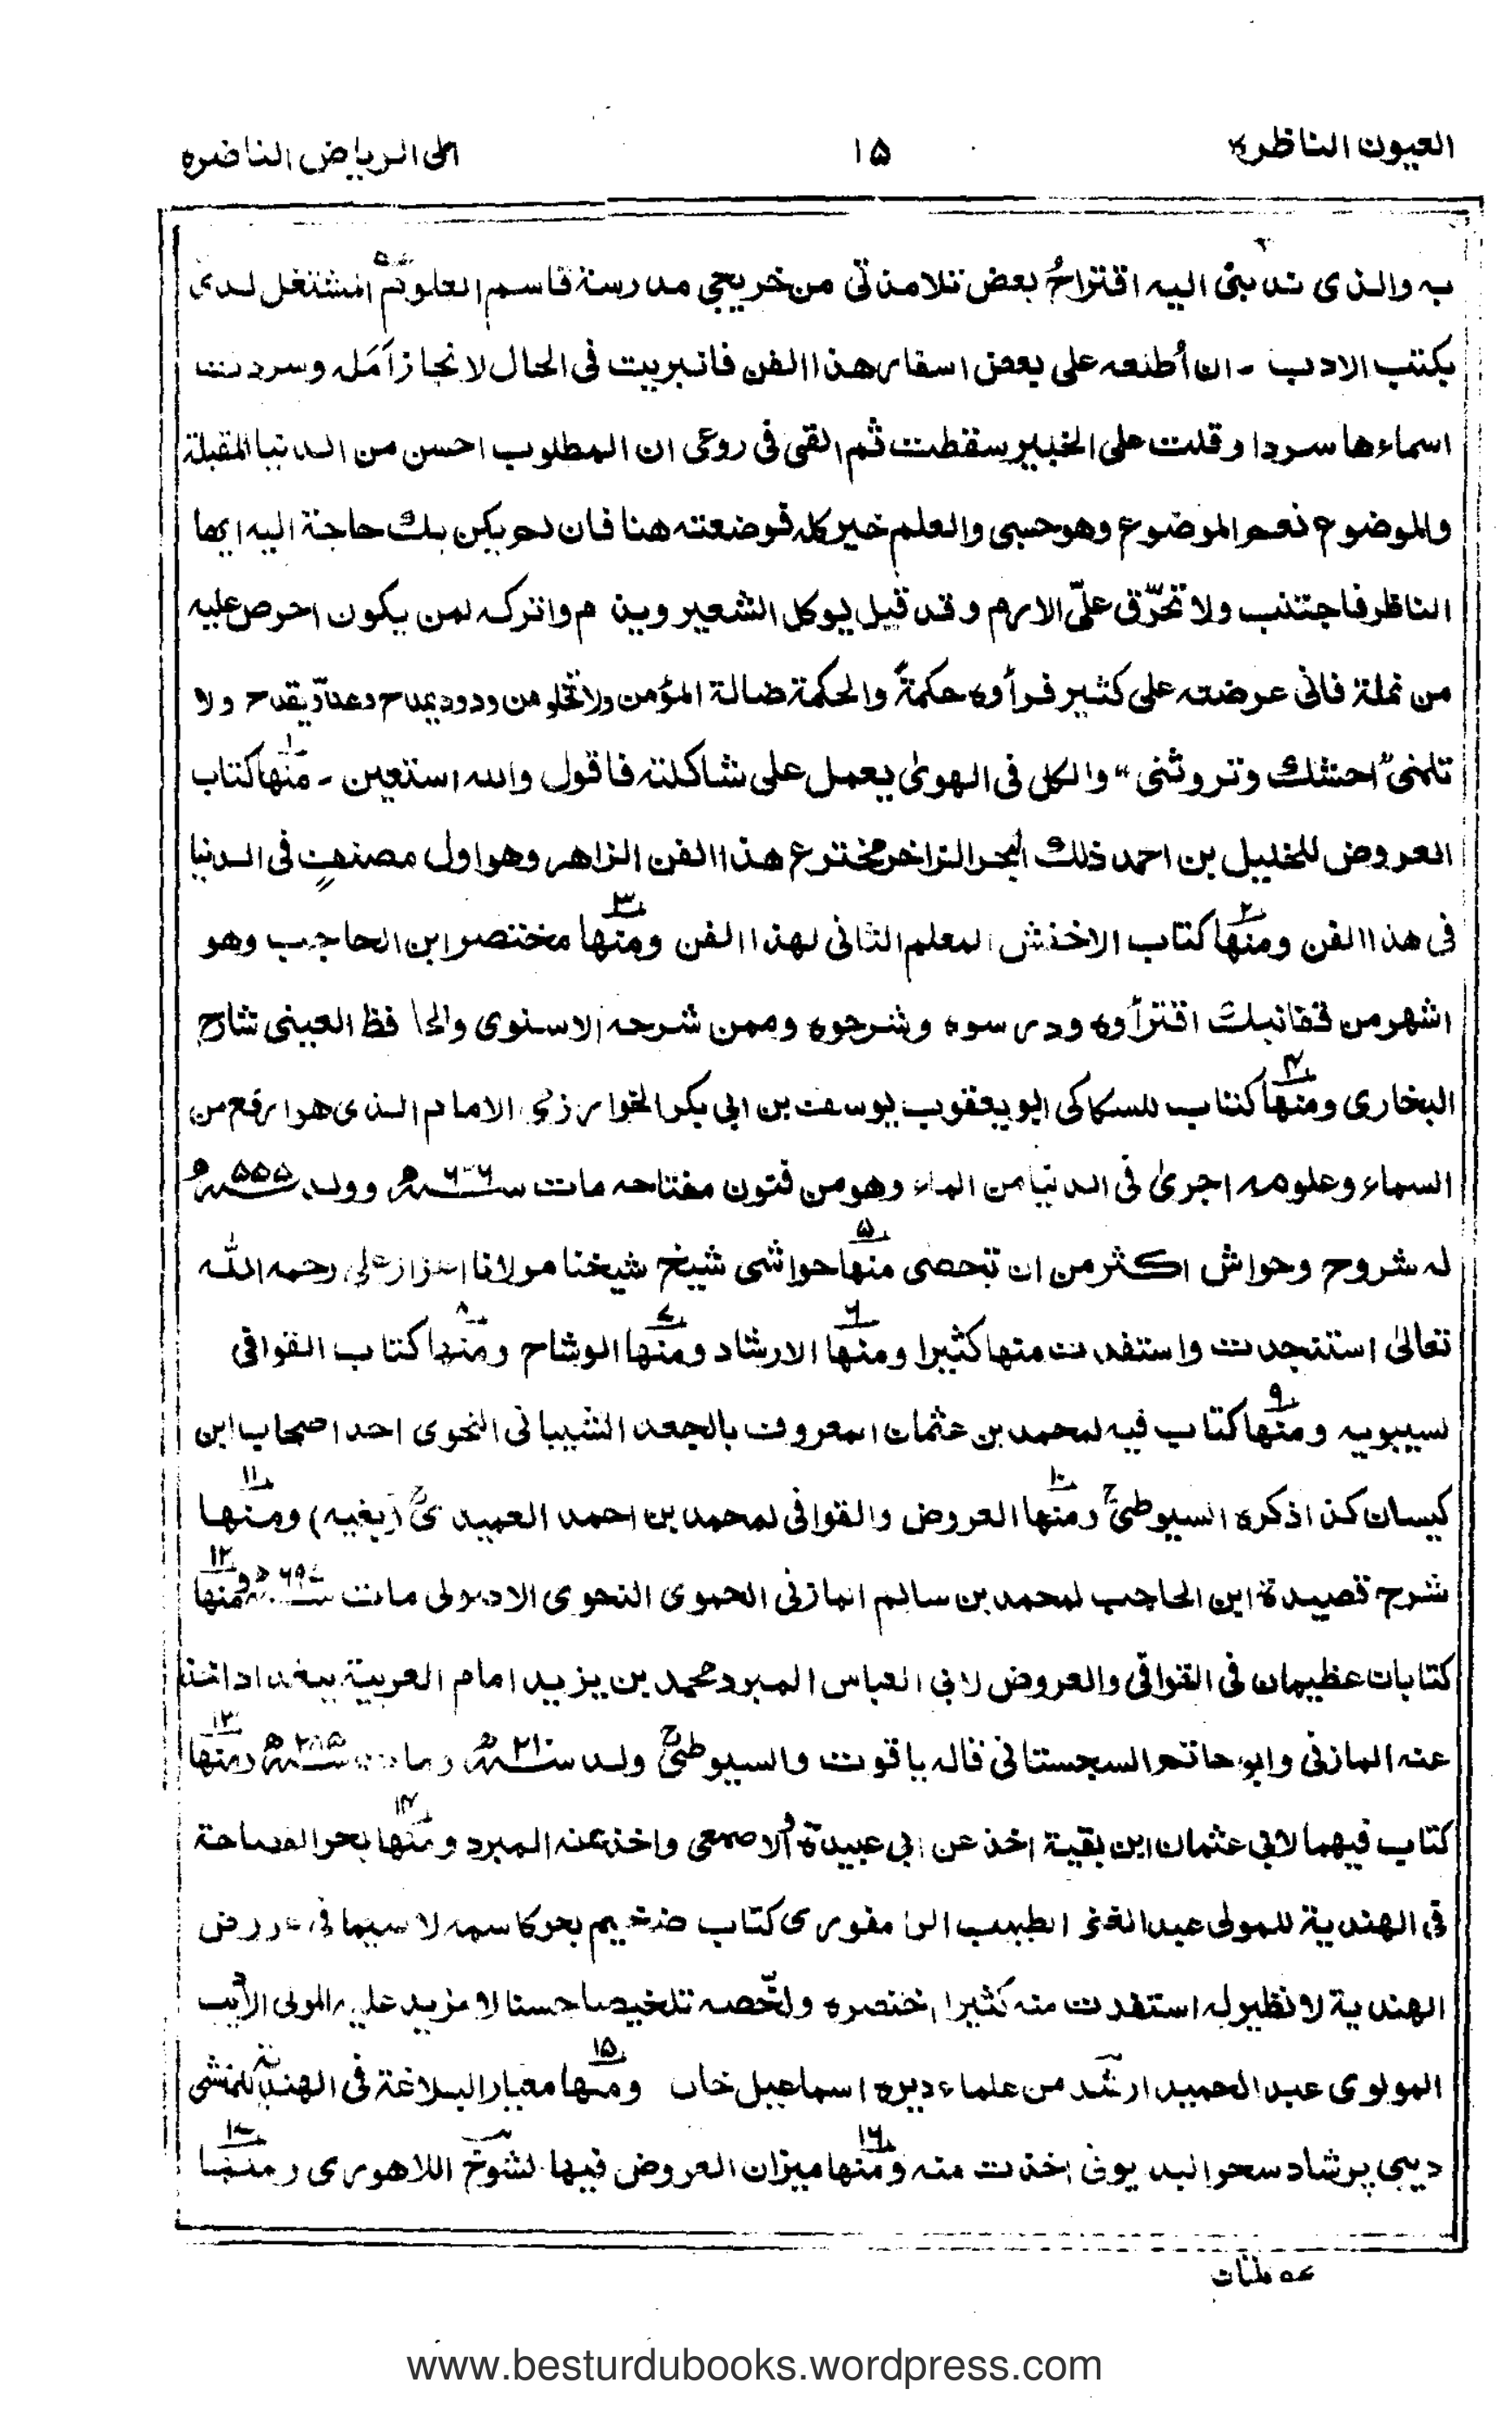 العيون الناظرة
۱۵
الى الرياض الناضره
به والذى ندبنى اليه اقتراحُ بعض تلامذتى من خريجى مدرسة قاسم العلوم المشتغل لدى
بكتب الادب - ان أطلعه على بعض اسفار هذا الفن فانبريت فى الحال لانجاز أمَله وسردت
اسماءها سردا وقلت على الخبير سقطت ثم القى فى روعى ان المطلوب احسن من الدنيا المقبلة
والموضوع نعم الموضوع وهو حسبى والعلم خير كله فوضعته هنا فان لم يكن بك حاجة اليه ايها
الناظر فاجتنب ولا تحرّق علىّ الارم وقد قيل يوكل الشعير ويذم واتركه لمن يكون احرص عليه
من نملة فانى عرضته على كثير فرأوه حكمةً والحكمة ضالة المؤمن ولا تخلو من ودود يمدح وعدوّ يقدح ولا
تلمنى "احشك وتروثنى" والكل فى الهوىٰ يعمل على شاكلته فاقول والله استعين - منها۱ كتاب
العروض للخليل بن احمد ذلك البحر الزاخر مخترع هذا الفن الزاهر وهو اول مصنفٍ فى الدنيا
فى هذا الفن ومنها۲ كتاب الاخفش المعلم الثانى لهذا الفن ومنها۳ مختصر ابن الحاجب وهو
اشهر من قفانبك اقترأوه ودرسوه وشرحوه وممن شرحه الاسنوى والحافظ العينى شارح
البخارى ومنها۴ كتاب للسكاكى ابو يعقوب يوسف بن ابى بكر الخوارزمى الامام الذى هو ارفع من
السماء وعلومه اجرىٰ فى الدنيا من الماء وهو من فنون مفتاحه مات سنه ۶۲۶ھ وولد سنه ۵۵۵ھ
له شروح وحواش اكثر من ان تحصى منها۵ حواشى شيخ شيخنا مولانا اعزاز على رحمه الله
تعالىٰ استنجدت واستفدت منها كثيرا ومنها۶ الارشاد ومنها۷ الوشاح ومنها۸ كتاب القوافى
لسيبويه ومنها۹ كتاب فيه لمحمد بن عثمان المعروف بالجعد الشيبانى النحوى احد اصحاب ابن
كيسان كذا ذكره السيوطىؒ ومنها۱۰ العروض والقوافى لمحمد بن احمد العميدىؒ (بغيه) ومنها۱۱
شرح قصيدة ابن الحاجب لمحمد بن سالم المازنى الحموى النحوى الاصولى مات سنه ۶۹۷ھ ومنها۱۲
كتابان عظيمان فى القوافى والعروض لابى العباس المبرد محمد بن يزيد امام العربية ببغداد اخذ
عنه المازنى وابو حاتم السجستانى قاله ياقوت والسيوطىؒ ولد سنه ۲۱۰ھ ومات سنه ۲۸۵ھ ومنها۱۳
كتاب فيهما لابى عثمان ابن بقية اخذ عن ابى عبيدة والاصمعى واخذ عنه المبرد ومنها۱۴ بحر الفصاحة
فى الهندية للمولى عبد الغنى الطبيب الرامفورى كتاب ضخيم بحر كاسمه لا سيما فى عروض
الهندية لا نظير له استفدت منه كثيرا اختصره ولخّصه تلخيصا حسنا لا مزيد عليه المولى الأديب
المولوى عبد الحميد ارشد من علماء ديره اسماعيل خان ومنها۱۵ معيار البلاغة فى الهندية للمنشى
ديبى پرشاد سحر البديونى اخذت منه ومنها۱۶ ميزان العروض فيها لشوخ اللاهورى ومنها۱۷
www.besturdubooks.wordpress.com